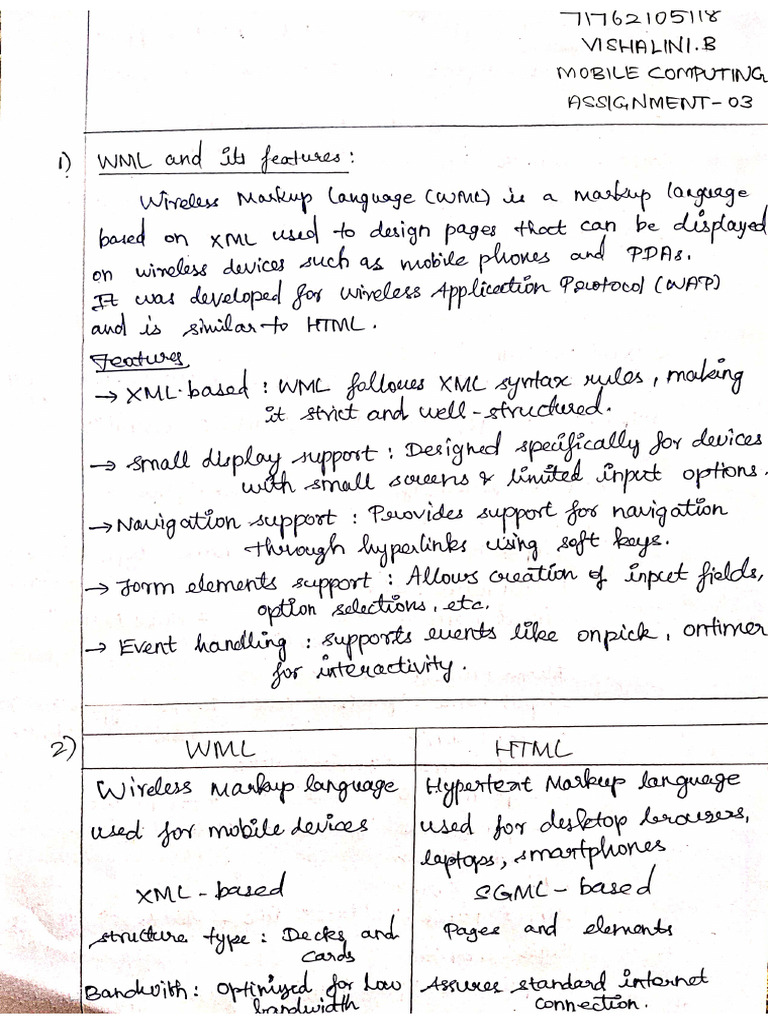 71762105118
VISHALINI.B
MOBILE COMPUTING
ASSIGNMENT-03
1) WML and its features:
Wireless Markup Language (WML) is a markup language
based on XML used to design pages that can be displayed
on wireless devices such as mobile phones and PDAs.
It was developed for Wireless Application Protocol (WAP)
and is similar to HTML.
Features
→ XML-based : WML follows XML syntax rules, making
it strict and well-structured.
→ Small display support : Designed specifically for devices
with small screens & limited input options.
→ Navigation support : Provides support for navigation
through hyperlinks using soft keys.
→ Form elements support : Allows creation of input fields,
option selections, etc.
→ Event handling : supports events like onpick, ontimer
for interactivity.
2) WML | HTML
Wireless Markup language | Hypertext Markup language
used for mobile devices | used for desktop browsers,
laptops, smartphones
XML-based | SGML-based
Structure type : Decks and | Pages and elements
cards
Bandwith : Optimized for low | Assures standard internet
bandwidth | connection.